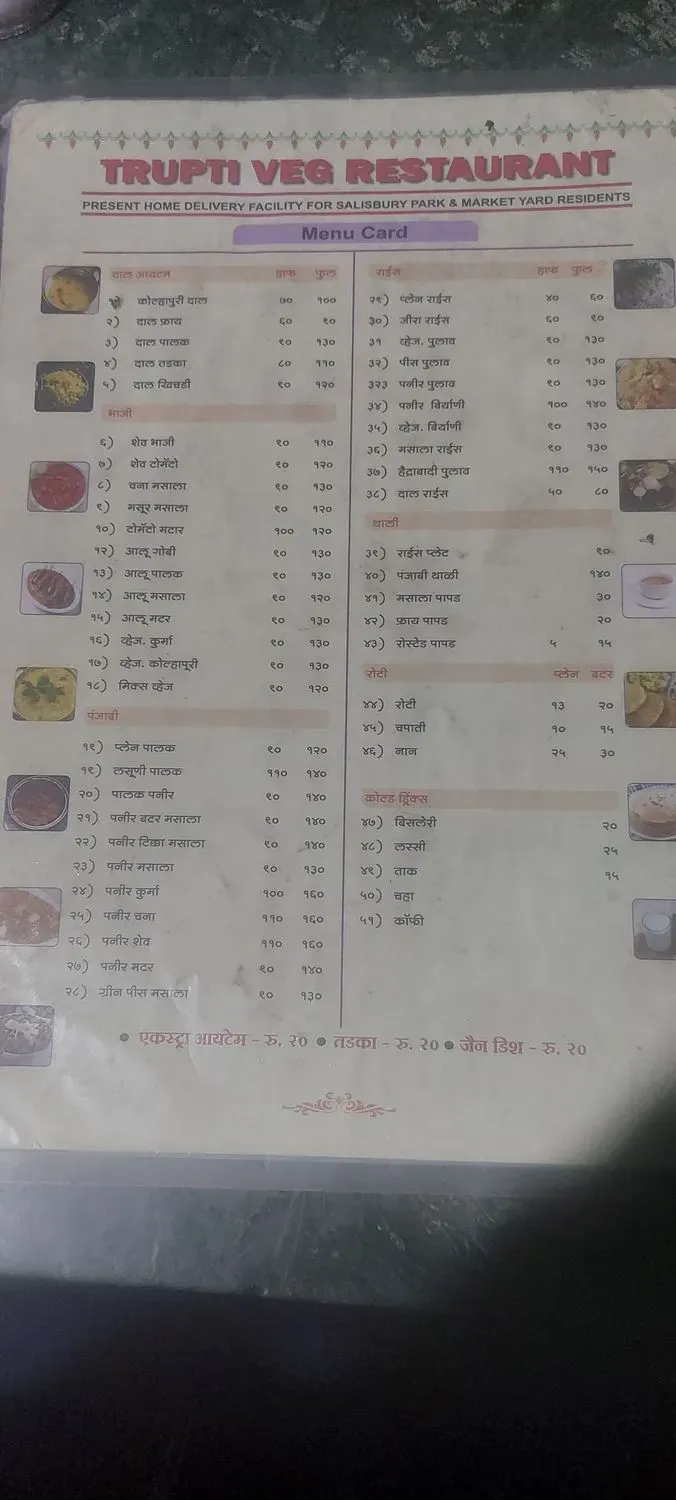 TRUPTI VEG RESTAURANT
PRESENT HOME DELIVERY FACILITY FOR SALISBURY PARK & MARKET YARD RESIDENTS
Menu Card
दाल आयटम हाफ फुल
कोल्हापुरी दाल ७० १००
२) दाल फ्राय ६० ९०
३) दाल पालक ९० १३०
४) दाल तडका ८० ११०
५) दाल खिचडी ९० १२०
भाजी
६) शेव भाजी ९० ११०
७) शेव टोमॅटो ९० १२०
८) चना मसाला ९० १३०
९) मसूर मसाला ९० १२०
१०) टोमॅटो मटार १०० १२०
१२) आलू गोबी ९० १३०
१३) आलू पालक ९० १३०
१४) आलू मसाला ९० १२०
१५) आलू मटर ९० १३०
१६) व्हेज. कुर्मा ९० १३०
१७) व्हेज. कोल्हापूरी ९० १३०
१८) मिक्स व्हेज ९० १२०
पंजाबी
१९) प्लेन पालक ९० १२०
१९) लसूणी पालक ११० १४०
२०) पालक पनीर ९० १४०
२१) पनीर बटर मसाला ९० १४०
२२) पनीर टिक्का मसाला ९० १४०
२३) पनीर मसाला ९० १३०
२४) पनीर कुर्मा १०० १६०
२५) पनीर चना ११० १६०
२६) पनीर शेव ११० १६०
२७) पनीर मटर ९० १४०
२८) ग्रीन पीस मसाला ९० १३०
राईस हाफ फुल
२९) प्लेन राईस ४० ६०
३०) जीरा राईस ६० ९०
३१ व्हेज. पुलाव ९० १३०
३२) पीस पुलाव ९० १३०
३२३ पनीर पुलाव ९० १३०
३४) पनीर बिर्याणी १०० १४०
३५) व्हेज. बिर्याणी ९० १३०
३६) मसाला राईस ९० १३०
३७) हैद्राबादी पुलाव ११० १५०
३८) दाल राईस ५० ८०
थाली
३९) राईस प्लेट ९०
४०) पंजाबी थाळी १४०
४१) मसाला पापड ३०
४२) फ्राय पापड २०
४३) रोस्टेड पापड ५ १५
रोटी प्लेन बटर
४४) रोटी १३ २०
४५) चपाती १० १५
४६) नान २५ ३०
कोल्ड ड्रिंक्स
४७) बिसलेरी २०
४८) लस्सी २५
४९) ताक १५
५०) चहा
५१) कॉफी
● एकस्ट्रा आयटेम - रु. २० ● तडका - रु. २० ● जैन डिश - रु. २०